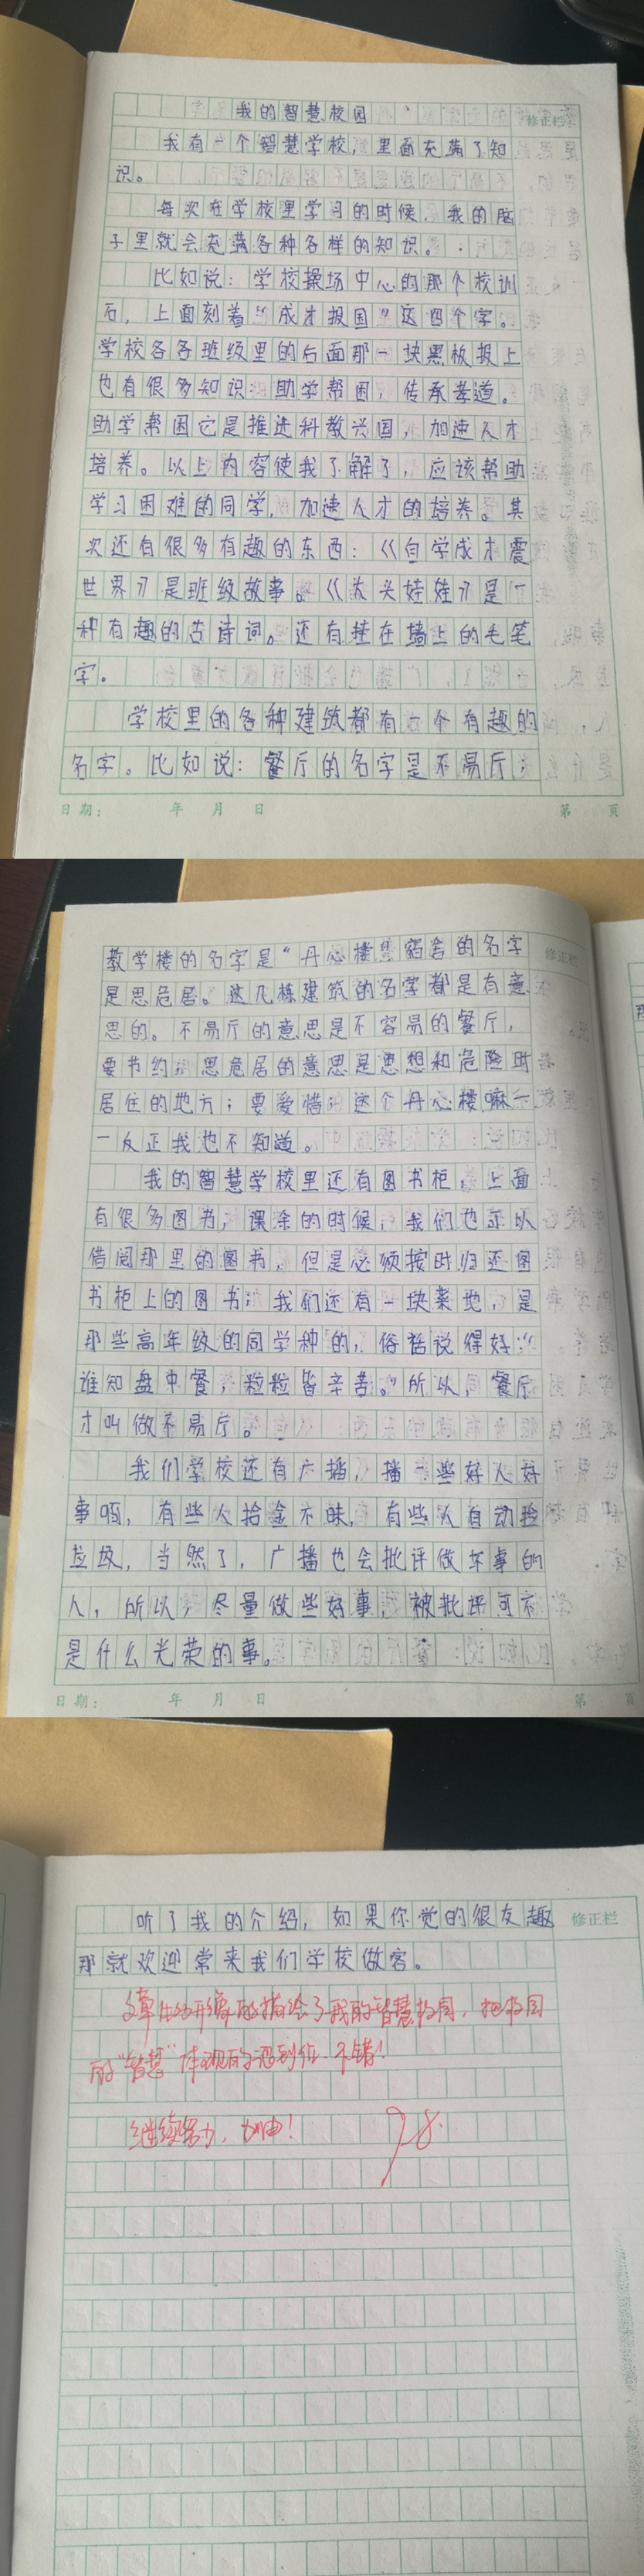 我的智慧校园
修正栏
我有一个智慧学校,里面充满了知
识。
每次在学校里学习的时候,我的脑
子里就会充满各种各样的知识。
比如说:学校操场中心的那个校训
石,上面刻着“成才报国”这四个字。
学校各各班级里的后面那一块黑板报上
也有很多知识:助学帮困,传承孝道。
助学帮困它是推进科教兴国,加速人才
培养。以上内容使我了解了,应该帮助
学习困难的同学,加速人才的培养。其
次还有很多有趣的东西:《自学成才震
世界》是班级故事。《大头娃娃》是一
种有趣的古诗词。还有挂在墙上的毛笔
字。
学校里的各种建筑都有一个有趣的
名字。比如说:餐厅的名字是不易厅;
日期: 年 月 日 第 页
教学楼的名字是“丹心楼”宿舍的名字
修正栏
是思危居。这几栋建筑的名字都是有意
思的。不易厅的意思是不容易的餐厅,
要节约;思危居的意思是思想和危险时
居住的地方;要爱惜;这个丹心楼嘛一
一反正我也不知道。
我的智慧学校里还有图书柜,上面
有很多图书,课余的时候,我们也可以
借阅那里的图书,但是必须按时归还图
书柜上的图书;我们还有一块菜地,是
那些高年级的同学种的,俗话说得好:“
谁知盘中餐,粒粒皆辛苦。”所以,餐厅
才叫做不易厅。
我们学校还有广播,播一些好人好
事呢,有些人拾金不昧,有些人自动捡
垃圾,当然了,广播也会批评做坏事的
人,所以,尽量做些好事,被批评可不
是什么光荣的事。
日期: 年 月 日 第 页
听了我的介绍,如果你觉的很友趣
修正栏
那就欢迎常来我们学校做客。
文章生动形象的描绘了我的智慧校园,把校园
的“智慧”体现的恰到位,不错!
继续努力,加油!
98.